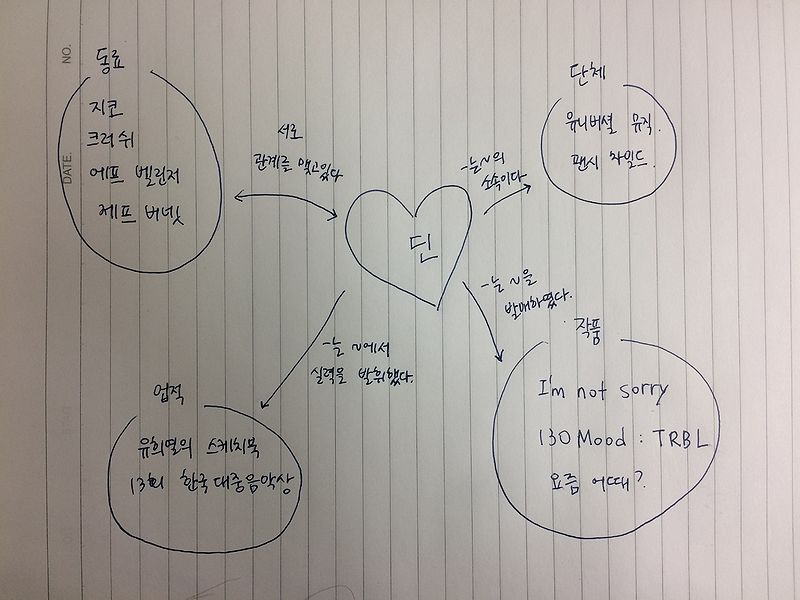 NO.
DATE.
동료
지코
크러쉬
에프 벨린저
제프 버넷
서로
관계를 맺고있다
단체
유니버셜 뮤직.
팬시 차일드.
-는~의
소속이다.
딘
-는 ~을
발매하였다.
작품
I'm not sorry
130 Mood : TRBL
요즘 어때?
-는 ~에서
실력을 발휘했다.
업적
유희열의 스케치북
13회 한국대중음악상